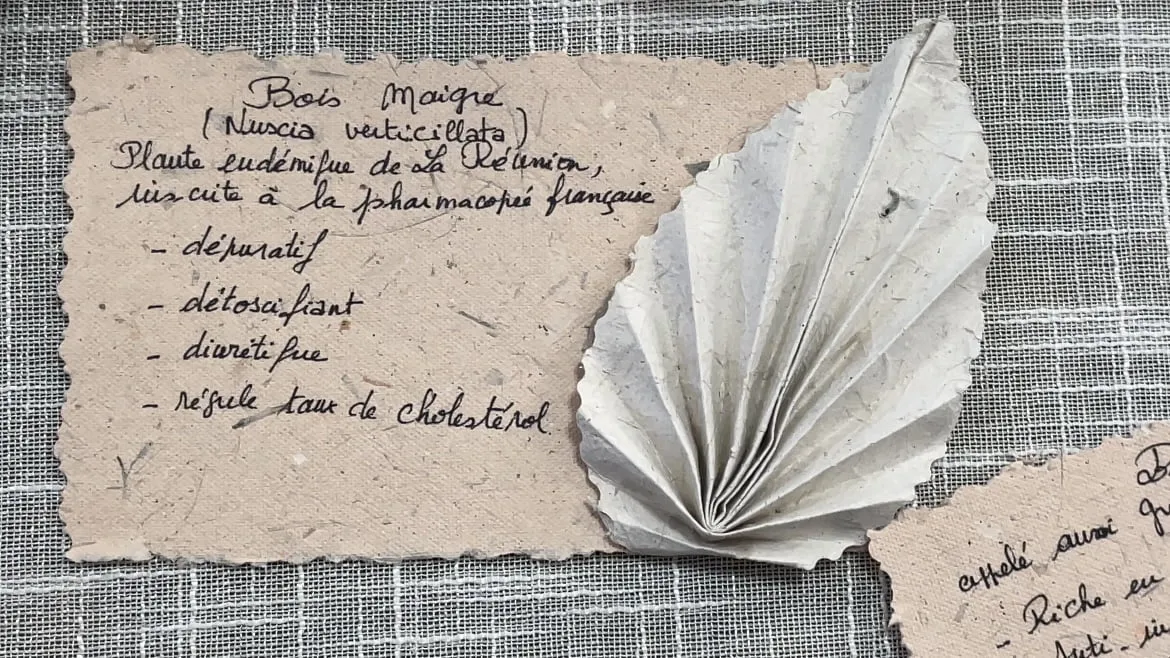 Bois Maigre
(Nuscia verticillata)
Plante endémique de La Réunion,
inscrite à la pharmacopée française
- dépuratif
- détoxifiant
- diurétique
- régule taux de cholestérol
appelé aussi
- Riche en